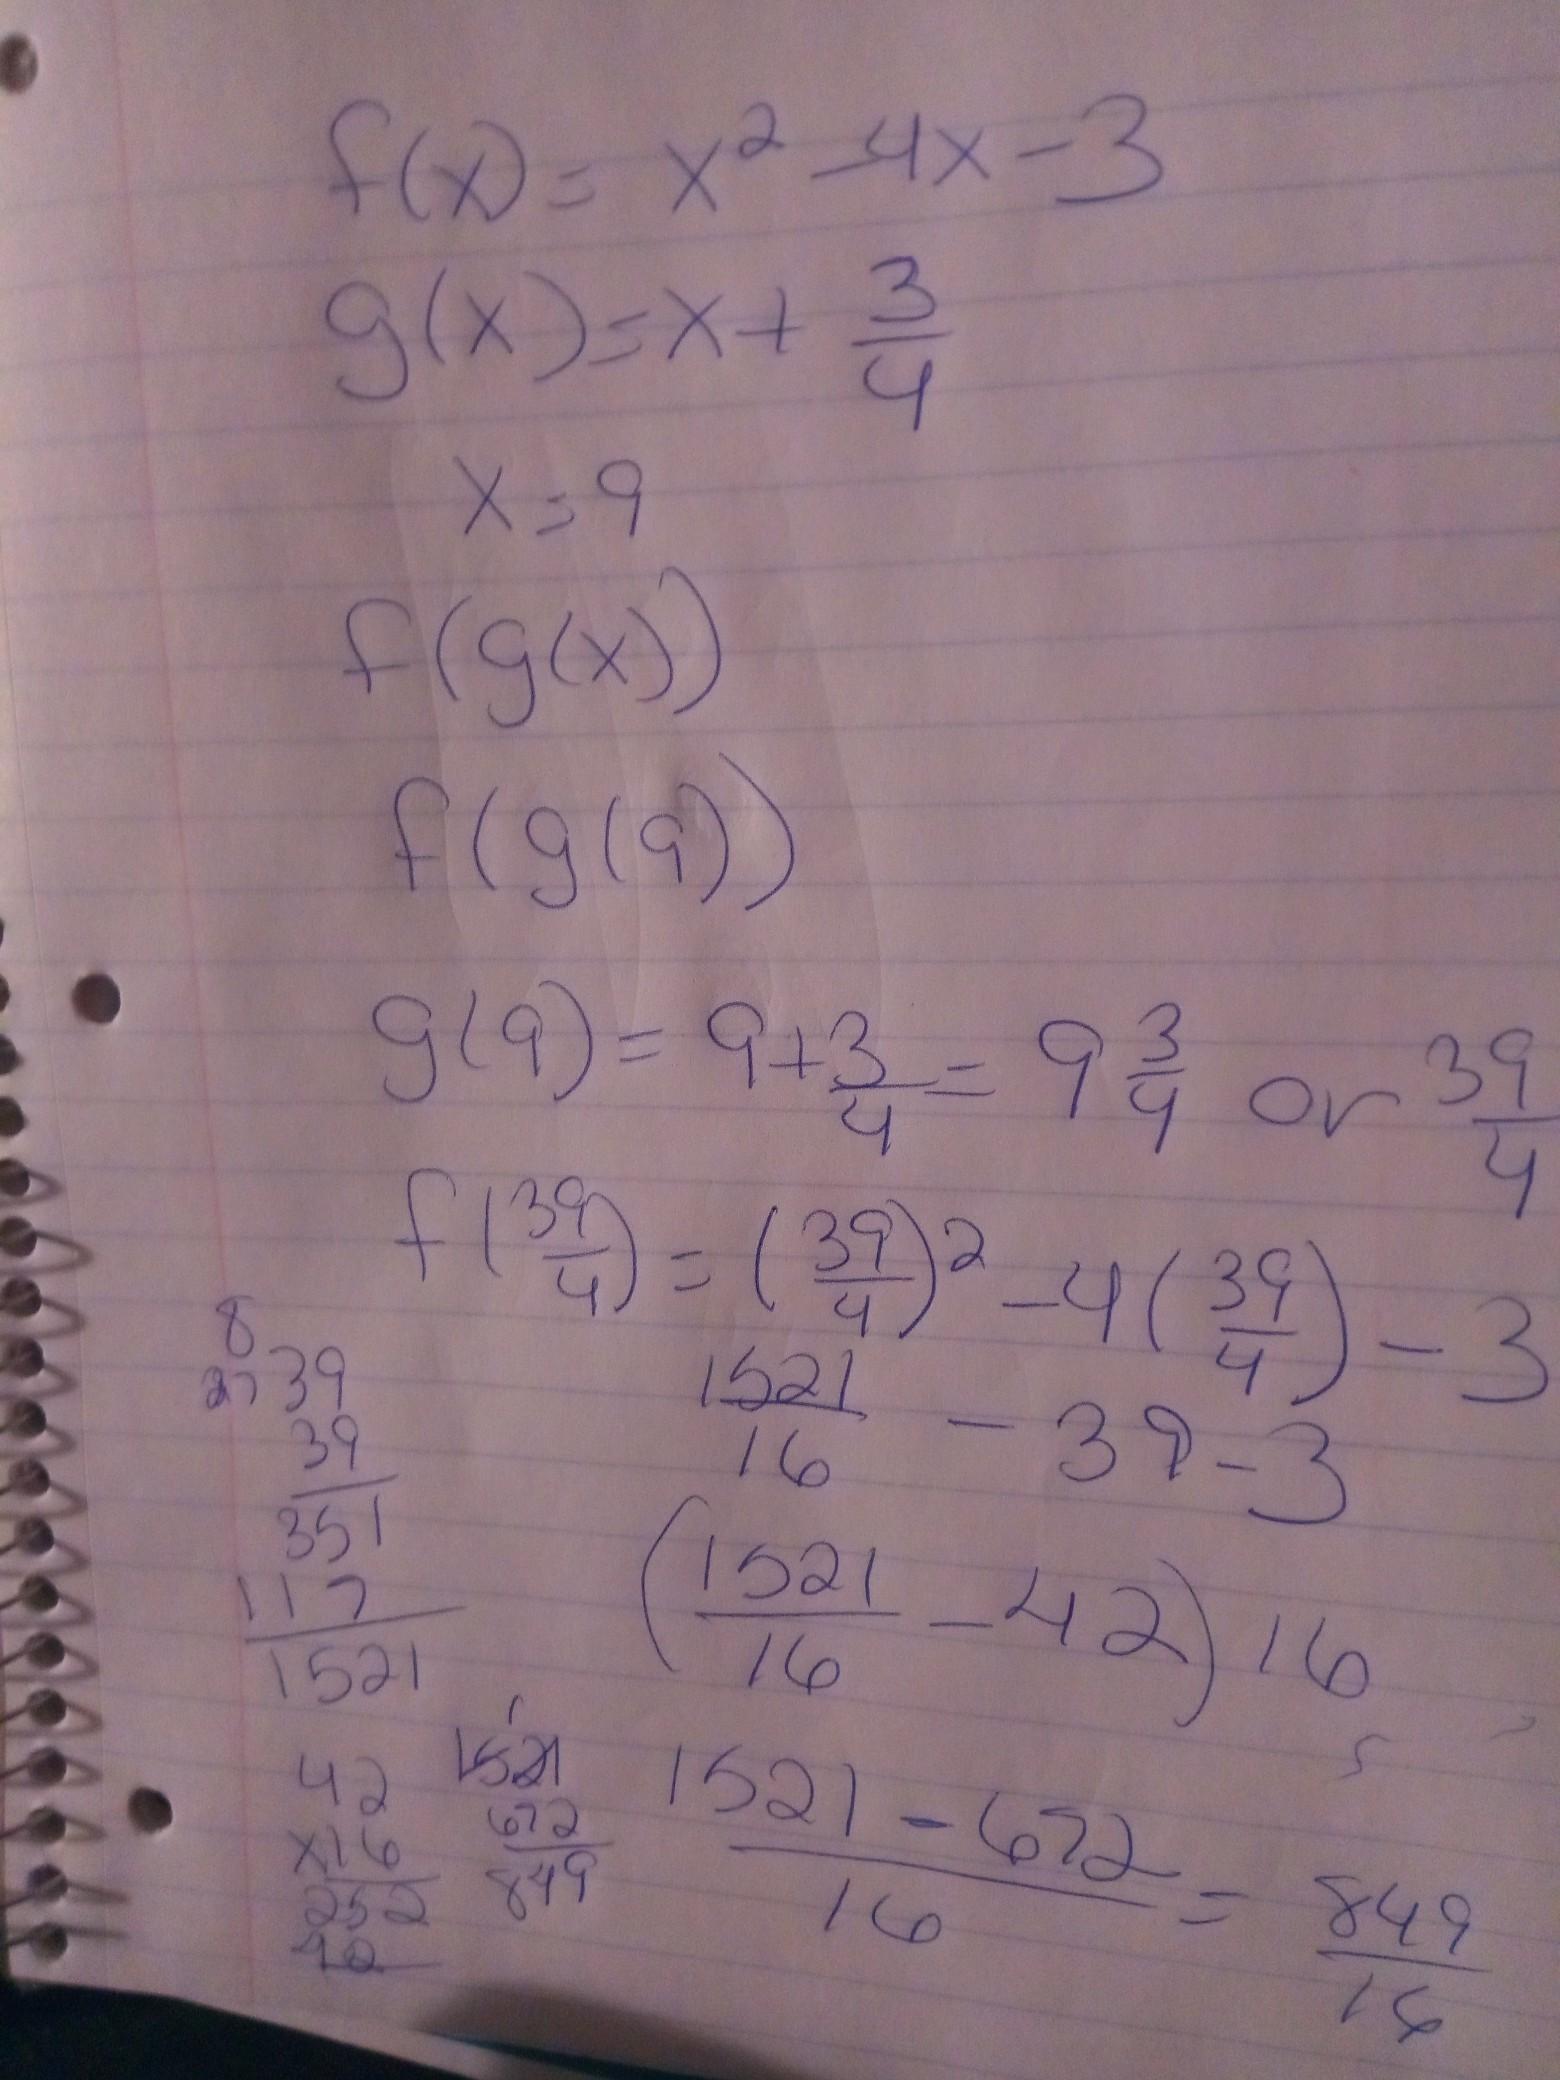 f(x) = x² - 4x - 3
g(x) = x + 3/4
x = 9
f(g(x))
f(g(9))
g(9) = 9 + 3/4 = 9 3/4 or 39/4
f(39/4) = (39/4)² - 4(39/4) - 3
1521/16 - 39 - 3
(1521/16 - 42) 16
1521 - 672 / 16 = 849/16
8
27 39
39
351
117
1521
42
x16
252
42
1
1521
672
849